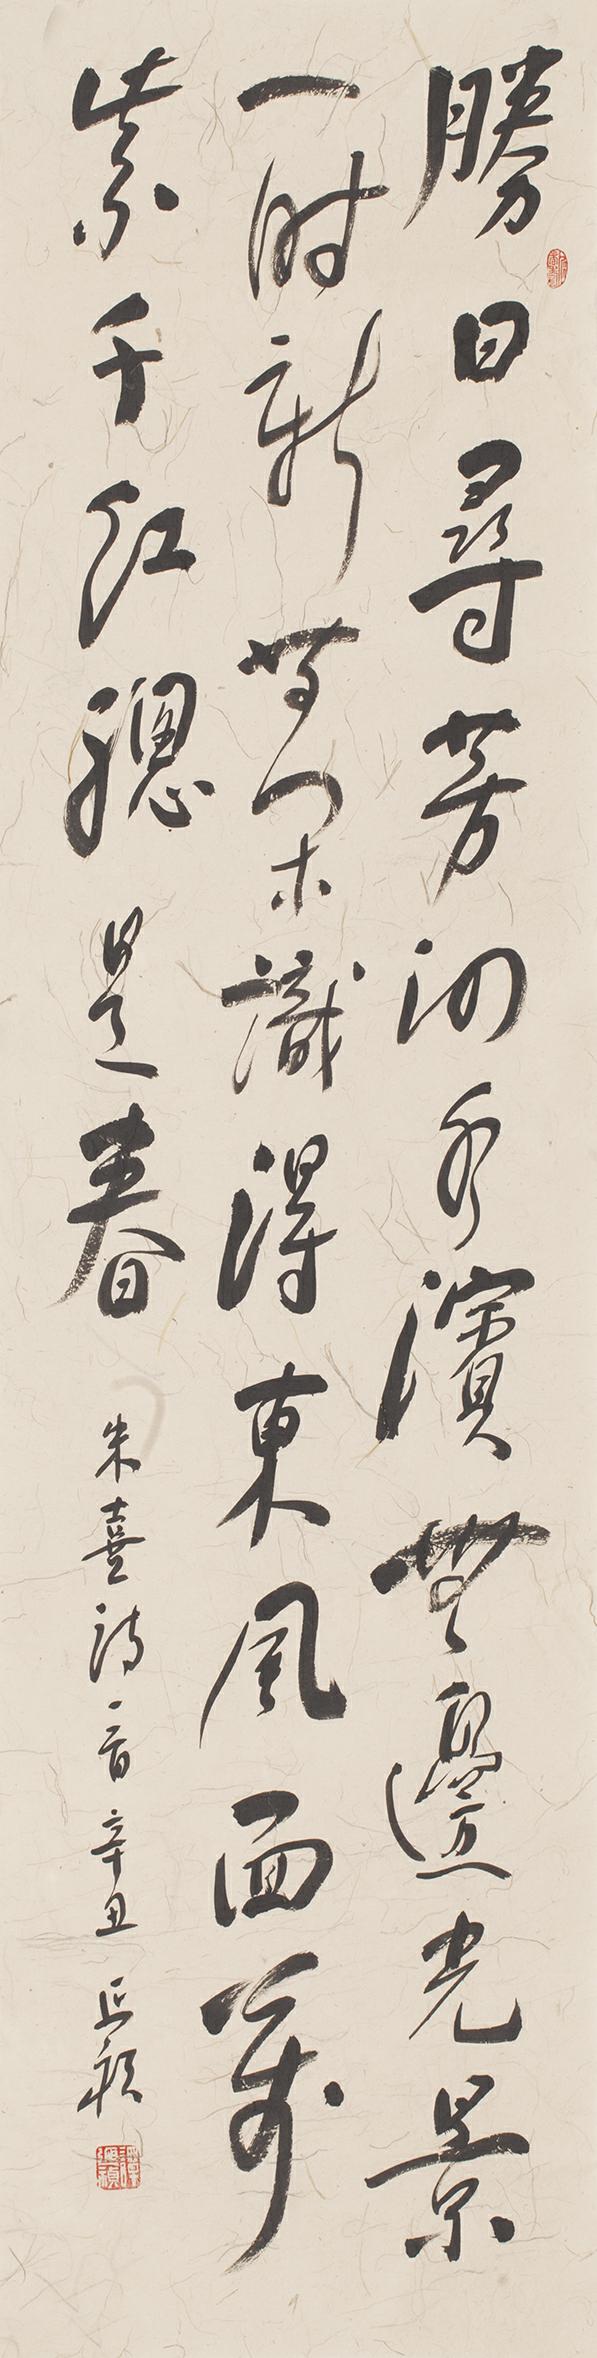 勝日尋芳泗水濱無邊光景
一時新等閑識得東風面萬
紫千紅總是春
朱熹詩一首辛丑延禎